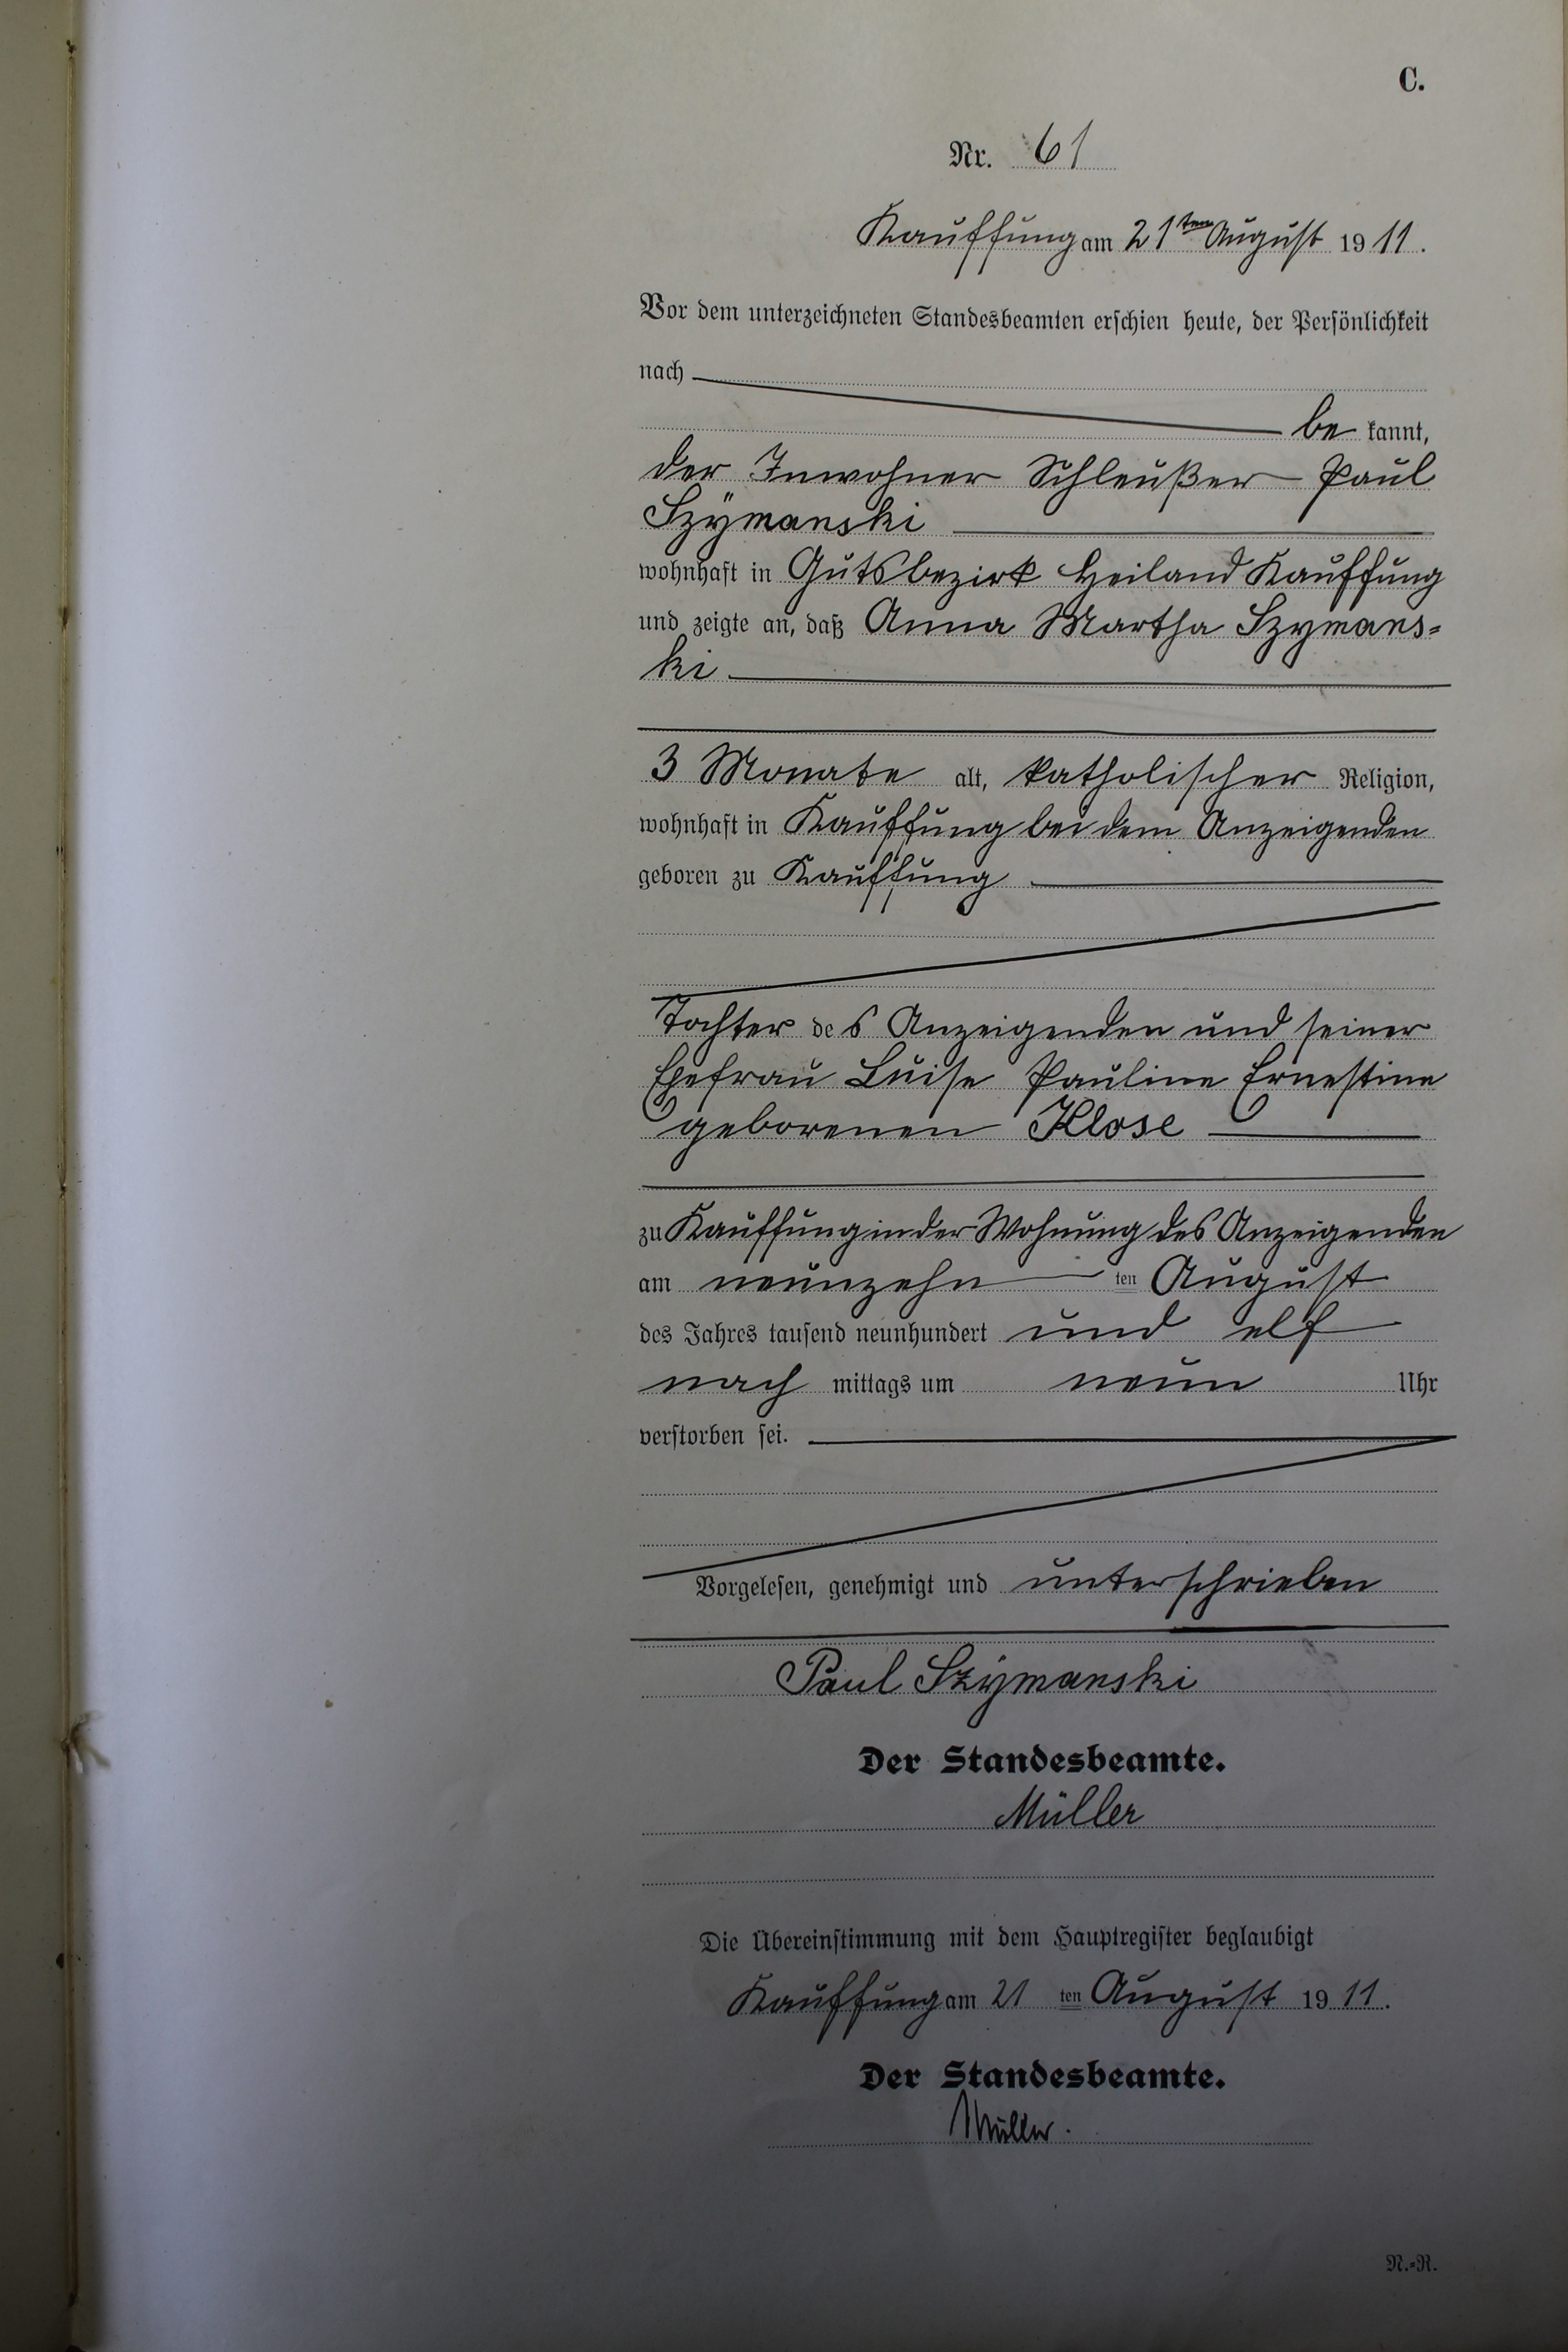 C.
Nr. 61
Kauffung am 21ten August 1911.
Vor dem unterzeichneten Standesbeamten erschien heute, der Persönlichkeit
nach
be kannt,
der Inwohner Schleußer Paul
Szÿmanski
wohnhaft in Gutsbezirk Heiland Kauffung
und zeigte an, daß Anna Martha Szymans=
ki
3 Monate alt, katholischer Religion,
wohnhaft in Kauffung bei dem Anzeigenden
geboren zu Kauffung
Tochter des Anzeigenden und seiner
Ehefrau Luise Pauline Ernestine
geborenen Klose
zu Kauffung in der Wohnung des Anzeigenden
am neunzehn ten August
des Jahres tausend neunhundert und elf
nach mittags um neun Uhr
verstorben sei.
Vorgelesen, genehmigt und unterschrieben
Paul Szÿmanski
Der Standesbeamte.
Müller
Die Übereinstimmung mit dem Hauptregister beglaubigt
Kauffung am 21 ten August 1911.
Der Standesbeamte.
Müller.
N.=R.